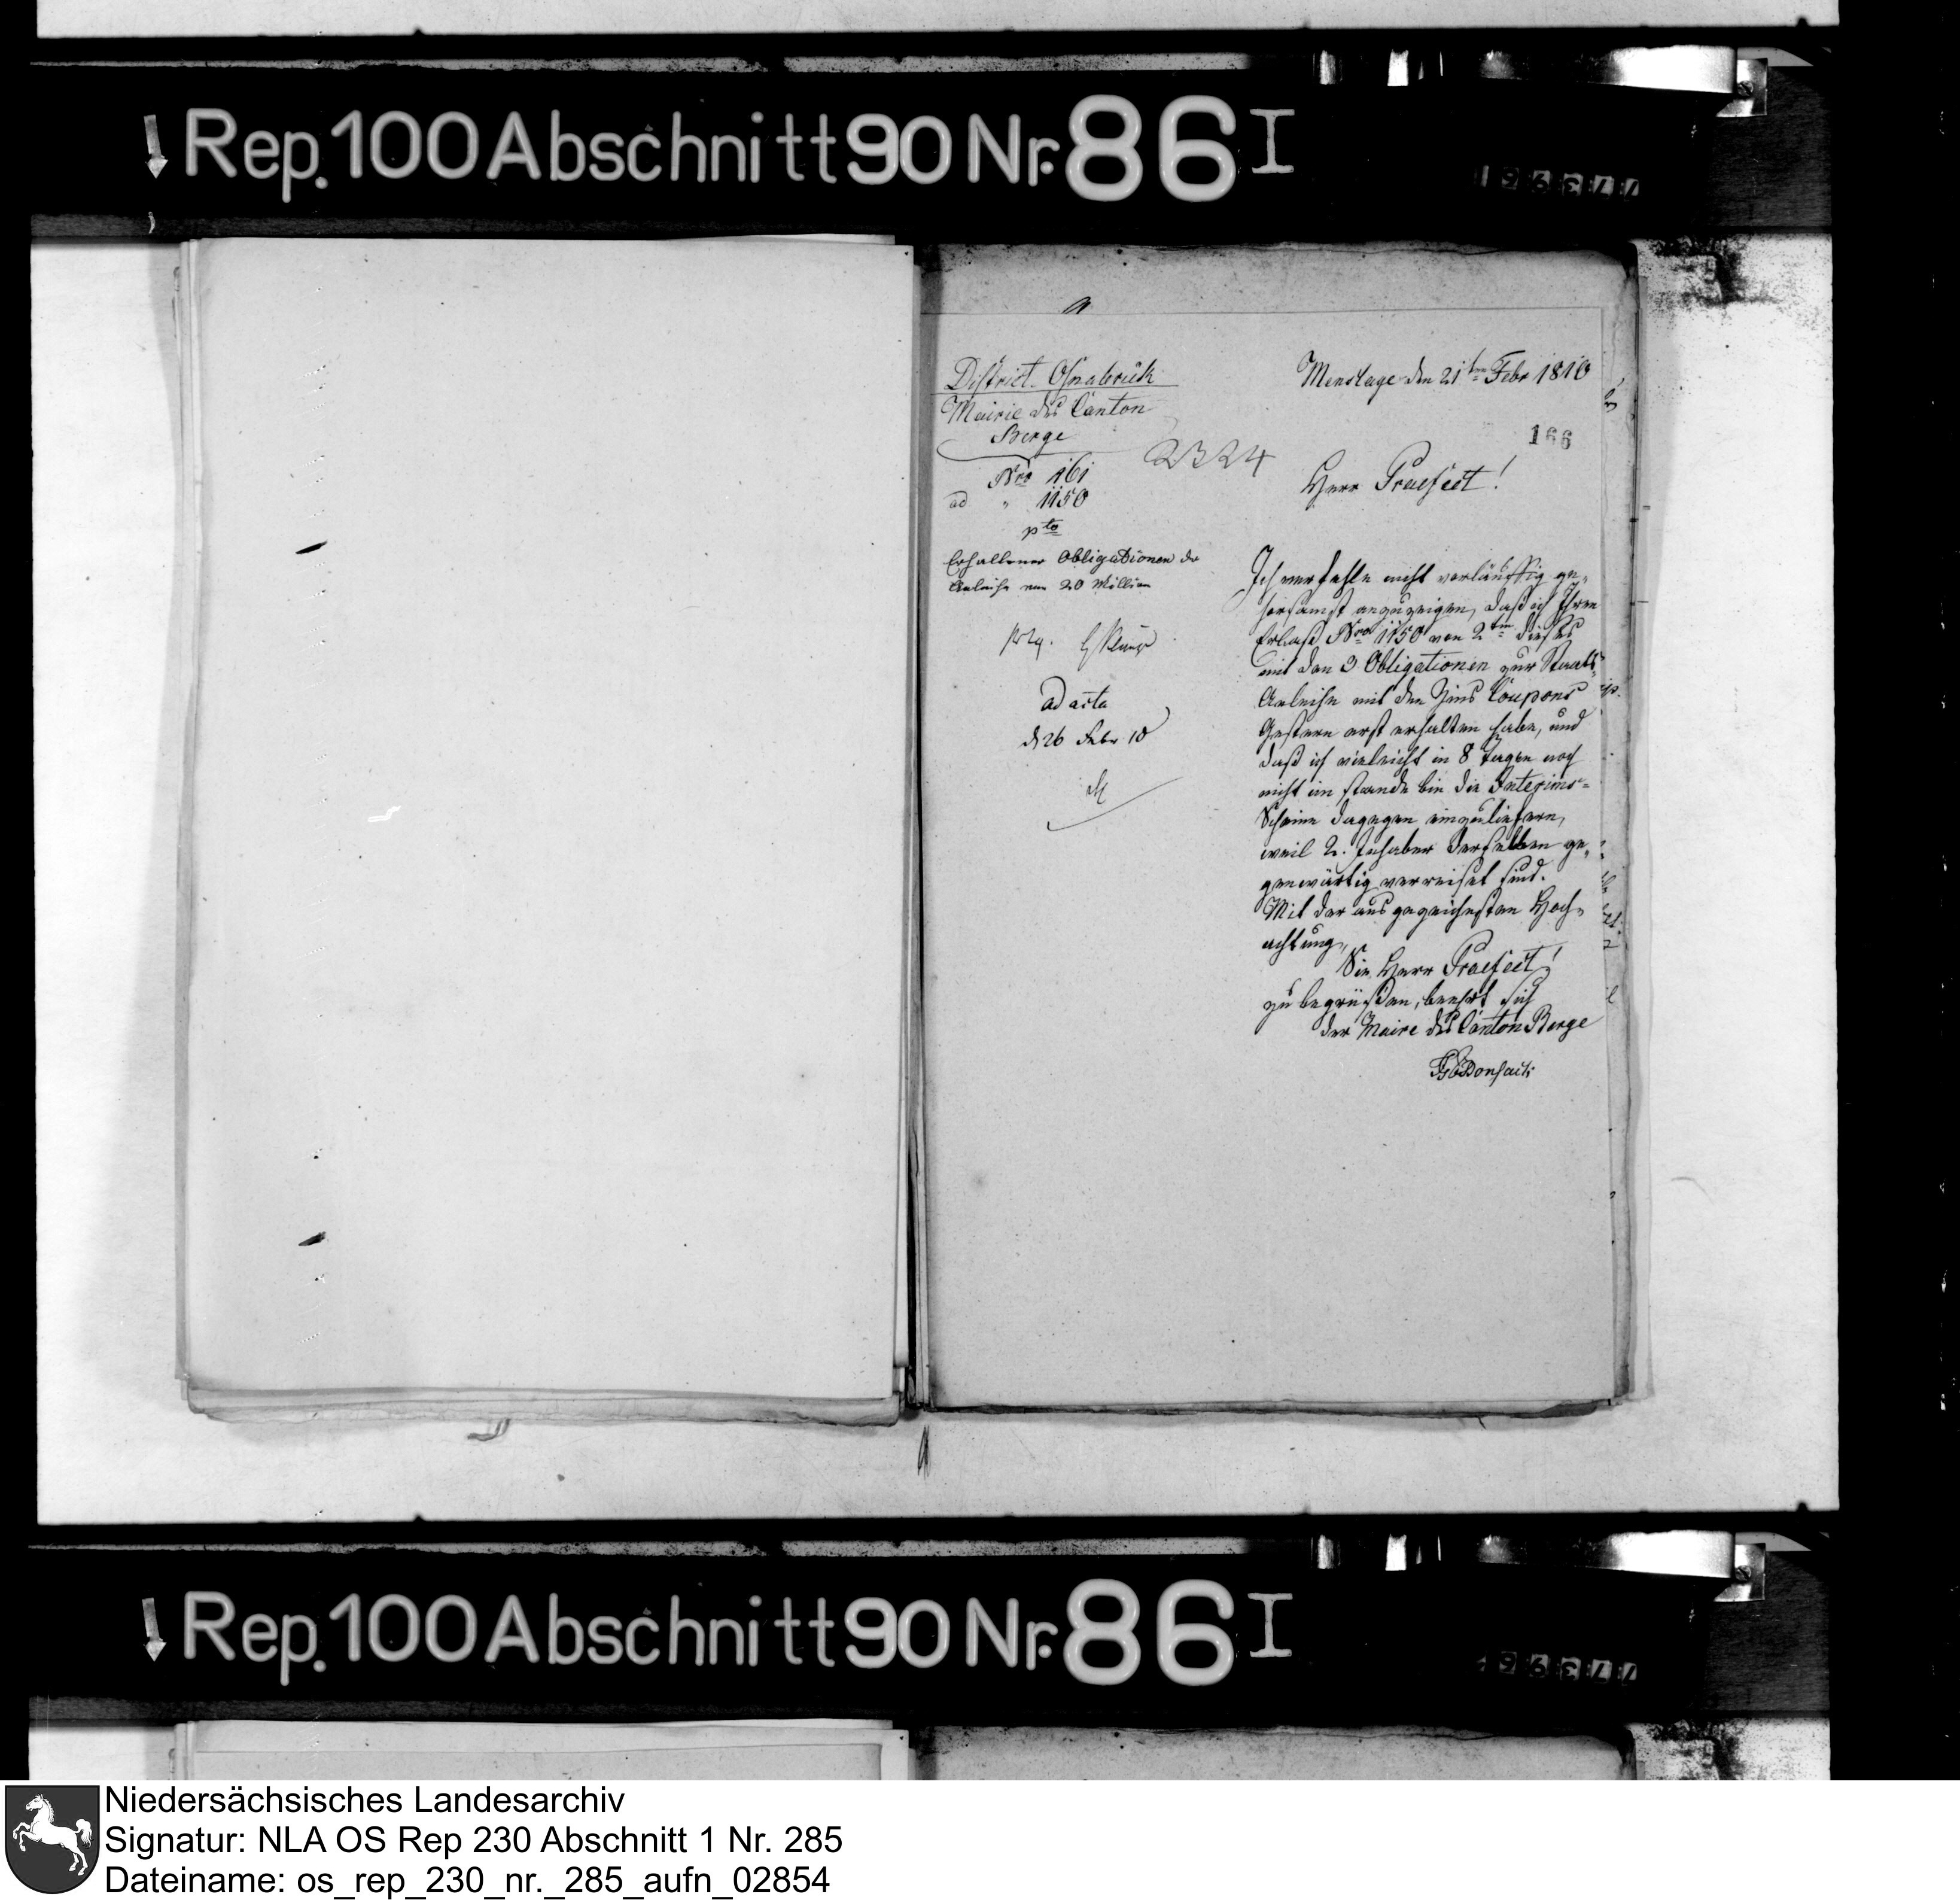 Rep. 100 Abschnitt 90 Nr. 86 I
District Osnabrück
Mairie des Canton
Berge
Nro 161
ad " 1150
pto
Erhaltener Obligationen der
Anleihe von 20 Million
ad acta
d 26 Febr 10
2324
Menslage den 21ten Febr 1810
166
Herr Praefect!
Ich verfehle nicht vorläuffig ge„
horsamst anzuzeigen, daß ich Ihren
Erlaß Nro 1150 von 2ten dieses
mit den 3 Obligationen zur Staats„
Anleihe mit den Zins Coupons
Gestern erst erhalten habe, und
daß ich vieleicht in 8 tagen noch
nicht im stande bin die Interims=
Scheine dagegen einzuliefern,
weil 2. Inhaber derselben ge„
genwärtig verreiset sind.
Mit der ausgezeichesten Hoch„
achtung,
Sie Herr Praefect!
zu begrüßen, beehrt sich
der Maire des Canton Berge
Rep. 100 Abschnitt 90 Nr. 86 I
Niedersächsisches Landesarchiv
Signatur: NLA OS Rep 230 Abschnitt 1 Nr. 285
Dateiname: os_rep_230_nr._285_aufn_02854